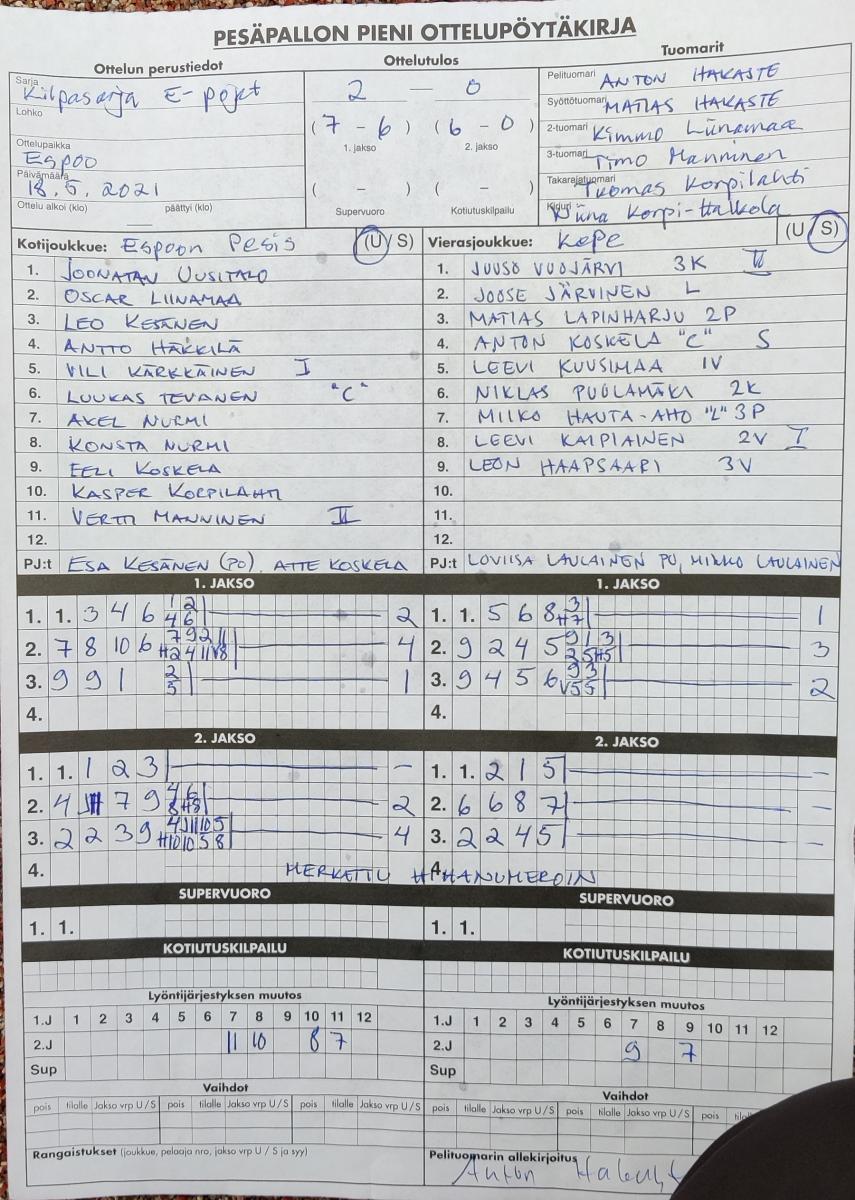 PESÄPALLON PIENI OTTELUPÖYTÄKIRJA
Ottelun perustiedot
Sarja
Kilpasarja E-pojat
Lohko
Ottelupaikka
Espoo
Päivämäärä
18.5.2021
Ottelu alkoi (klo) päättyi (klo)
Ottelutulos
2 — 0
(7 - 6) (6 - 0)
1. jakso 2. jakso
( - ) ( - )
Supervuoro Kotiutuskilpailu
Tuomarit
Pelituomari ANTON HAKASTE
Syöttötuomari MATIAS HAKASTE
2-tuomari Kimmo Liinamaa
3-tuomari Timo Manninen
Takarajatuomari Tuomas Korpilahti
Kirjuri Niina Korpi-Halkola
Kotijoukkue: Espoon Pesis (U/S)
1. JOONATAN UUSITALO
2. OSCAR LIINAMAA
3. LEO KESÄNEN
4. ANTTO HÄKKILÄ
5. VILI KÄRKKÄINEN I
6. LUUKAS TEVANEN "C"
7. AKEL NURMI
8. KONSTA NURMI
9. EELI KOSKELA
10. KASPER KORPILAHTI
11. VERTTI MANNINEN II
12.
PJ:t ESA KESÄNEN (PO), ATTE KOSKELA
Vierasjoukkue: KePe (U/S)
1. JUUSO VUOJÄRVI 3K II
2. JOOSE JÄRVINEN L
3. MATIAS LAPINHARJU 2P
4. ANTON KOSKELA "C" S
5. LEEVI KUUSIMAA 1V
6. NIKLAS PUOLAMÄKI 2K
7. MIIKO HAUTA-AHO "L" 3P
8. LEEVI KAIPIAINEN 2V I
9. LEON HAAPSAARI 3V
10.
11.
12.
PJ:t LOVIISA LAULAINEN PO, MIKKO LAULAINEN
1. JAKSO
1. 1. 3 4 6 1 2 4 6 2
2. 7 8 10 6 7 9 2 11 H2 4 11 V8 4
3. 9 9 1 2 5 1
4.
1. JAKSO
1. 1. 5 6 8 3 H7 1
2. 9 2 4 5 9 1 3 2 5 H5 3
3. 9 4 5 6 9 3 V5 5 2
4.
2. JAKSO
1. 1. 1 2 3 -
2. 4 7 9 4 6 8 H8 2
3. 2 2 3 9 4 11 10 5 H10 10 5 8 4
4.
2. JAKSO
1. 1. 2 1 5 -
2. 6 6 8 7 -
3. 2 2 4 5 -
4.
MERKATTU HIHANUMEROIN
SUPERVUORO
1. 1.
SUPERVUORO
1. 1.
KOTIUTUSKILPAILU
KOTIUTUSKILPAILU
Lyöntijärjestyksen muutos
1.J 1 2 3 4 5 6 7 8 9 10 11 12
2.J 11 10 8 7
Sup
Lyöntijärjestyksen muutos
1.J 1 2 3 4 5 6 7 8 9 10 11 12
2.J 9 7
Sup
Vaihdot
pois tilalle Jakso vrp U/S pois tilalle Jakso vrp U/S pois tilalle Jakso vrp U/S
Vaihdot
pois tilalle Jakso vrp U/S pois tilalle Jakso vrp U/S pois
Rangaistukset (joukkue, pelaaja nro, jakso vrp U / S ja syy)
Pelituomarin allekirjoitus
Anton